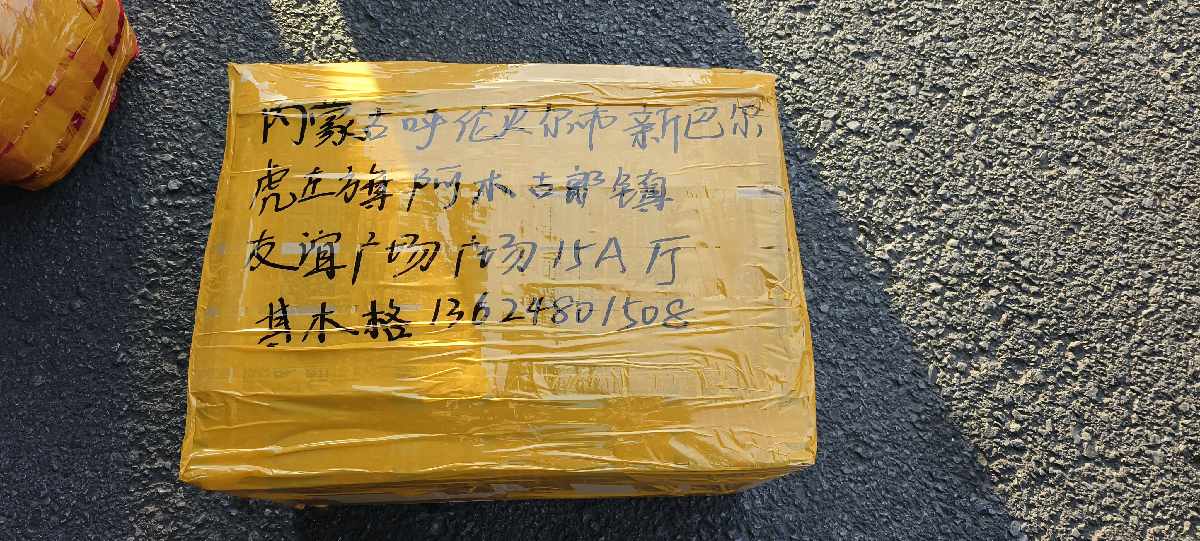 内蒙古呼伦贝尔市新巴尔
虎左旗阿木古郎镇
友谊广场广场15A厅
其木格13624801508